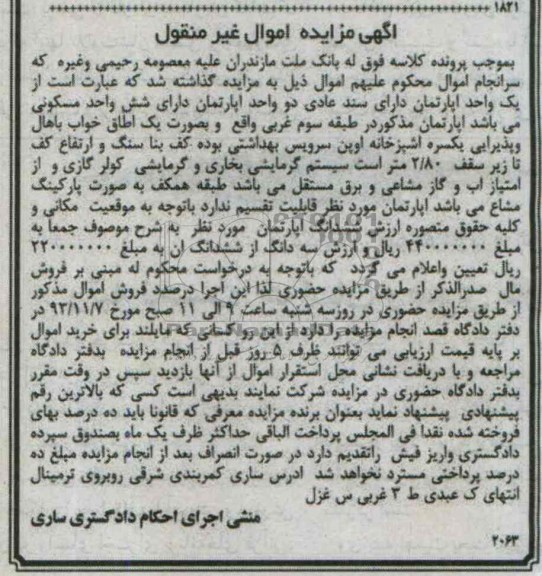 ۱۸۲۱
آگهی مزایده اموال غیر منقول
بموجب پرونده کلاسه فوق له بانک ملت مازندران علیه معصومه رحیمی وغیره که
سرانجام اموال محکوم علیهم اموال ذیل به مزایده گذاشته شد که عبارت است از
یک واحد اپارتمان دارای سند عادی دو واحد اپارتمان دارای شش واحد مسکونی
می باشد اپارتمان مذکوردر طبقه سوم غربی واقع و بصورت یک اطاق خواب باهال
وپذیرایی یکسره اشپزخانه اوپن سرویس بهداشتی بوده کف بنا سنگ و ارتفاع کف
تا زیر سقف ۲/۸۰ متر است سیستم گرمایشی بخاری و گرمایشی کولر گازی و از
امتیاز اب و گاز مشاعی و برق مستقل می باشد طبقه همکف به صورت پارکینگ
مشاع می باشد اپارتمان مورد نظر قابلیت تقسیم ندارد باتوجه به موقعیت مکانی و
کلیه حقوق متصوره ارزش ششدانگ اپارتمان مورد نظر به شرح موصوف جمعا به
مبلغ ۴۴۰۰۰۰۰۰۰ ریال و ارزش سه دانگ از ششدانگ ان به مبلغ ۲۲۰۰۰۰۰۰۰
ریال تعیین واعلام می گردد که باتوجه به درخواست محکوم له مبنی بر فروش
مال صدرالذکر از طریق مزایده حضوری لذا این اجرا درصدد فروش اموال مذکور
از طریق مزایده حضوری در روزسه شنبه ساعت ۹ الی ۱۱ صبح مورخ ۹۳/۱۱/۷ در
دفتر دادگاه قصد انجام مزایده را دارد از این رو کسانی که مایلند برای خرید اموال
بر پایه قیمت ارزیابی می توانند ظرف ۵ روز قبل از انجام مزایده بدفتر دادگاه
مراجعه و با دریافت نشانی محل استقرار اموال از آنها بازدید سپس در وقت مقرر
بدفتر دادگاه حضوری در مزایده شرکت نمایند بدیهی است کسی که بالاترین رقم
پیشنهادی پیشنهاد نماید بعنوان برنده مزایده معرفی که قانونا باید ده درصد بهای
فروخته شده نقدا فی المجلس پرداخت الباقی حداکثر ظرف یک ماه بصندوق سپرده
دادگستری واریز فیش راتقدیم دارد در صورت انصراف بعد از انجام مزایده مبلغ ده
درصد پرداختی مسترد نخواهد شد ادرس ساری کمربندی شرقی روبروی ترمینال
انتهای ک عبدی ط ۳ غربی س غزل
منشی اجرای احکام دادگستری ساری
۲۰۶۳